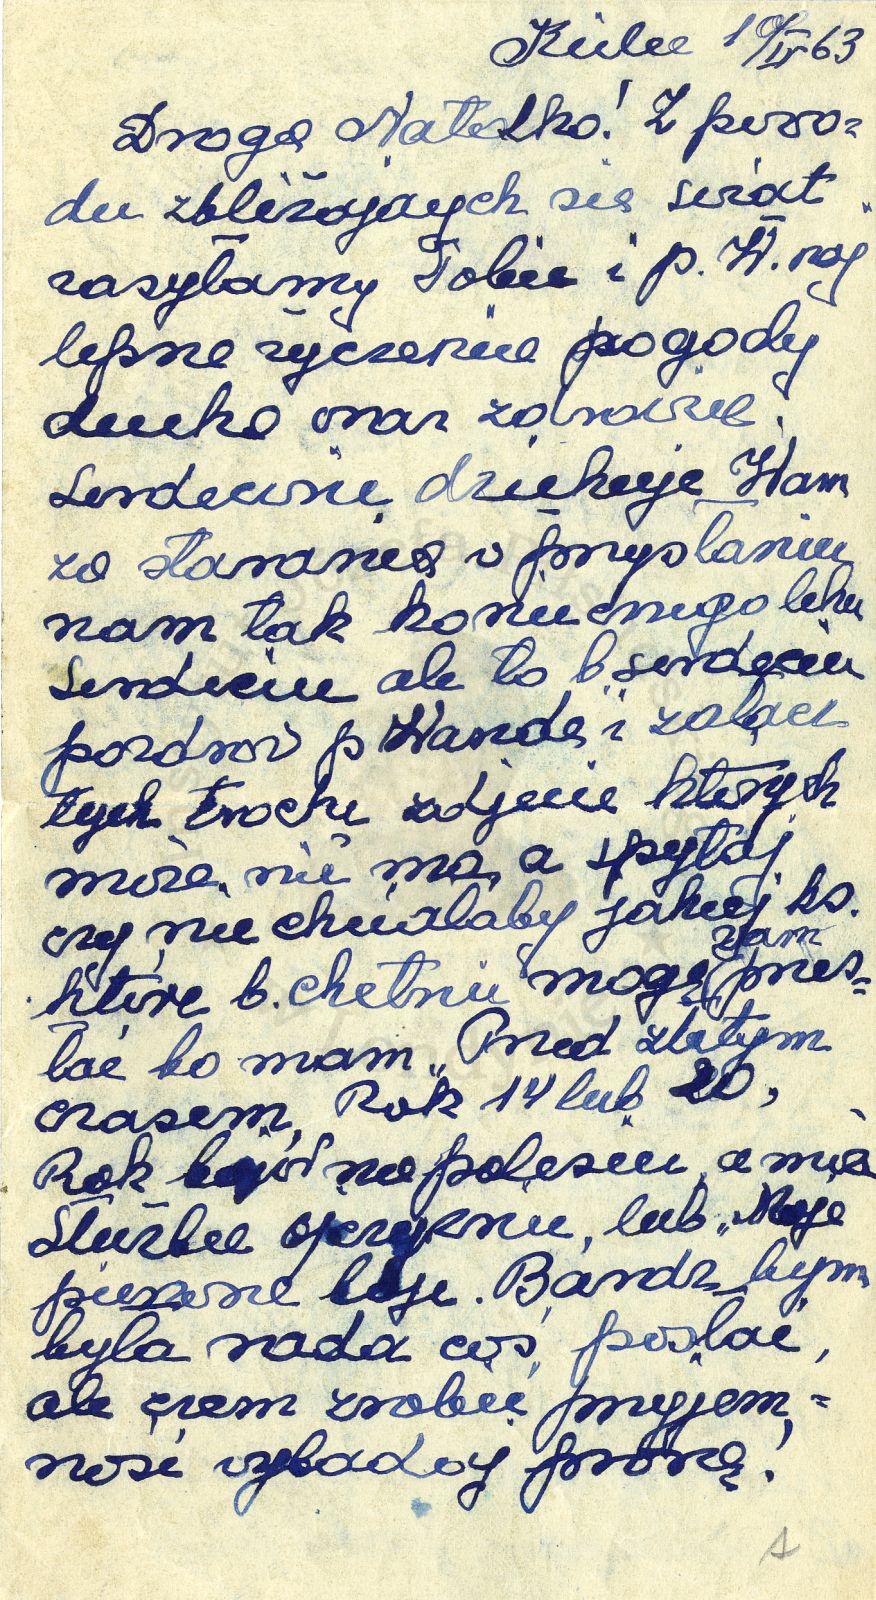 Kielce 10/IV 63
Droga Natalko! Z powo=
du zbliżajaych się świąt
zasyłamy Tobie i p. W. naj
lepsze życzenie pogody
ducha oraz zdrowie.
Serdecznie dziekuje Wam
za starania o przysłaniu
nam tak koniecznego leku
Serdecznie ale to b. serdecznie
pozdrow p Wande i załącz
tych troche zdjecie których
może nie ma, a spytaj
czy nie chciałaby jakiej ks.
które b. chetnie moge wam przes=
łać bo mam „Przed złotym
czasem, Rok 14 lub 20,
Rok na polesiu, a może
Służba ojczyznie, lub „Moje
pierwsze boje. Bardz bym
była rada coś posłać,
ale czem zrobić przyjem=
ność wybadaj proszę!